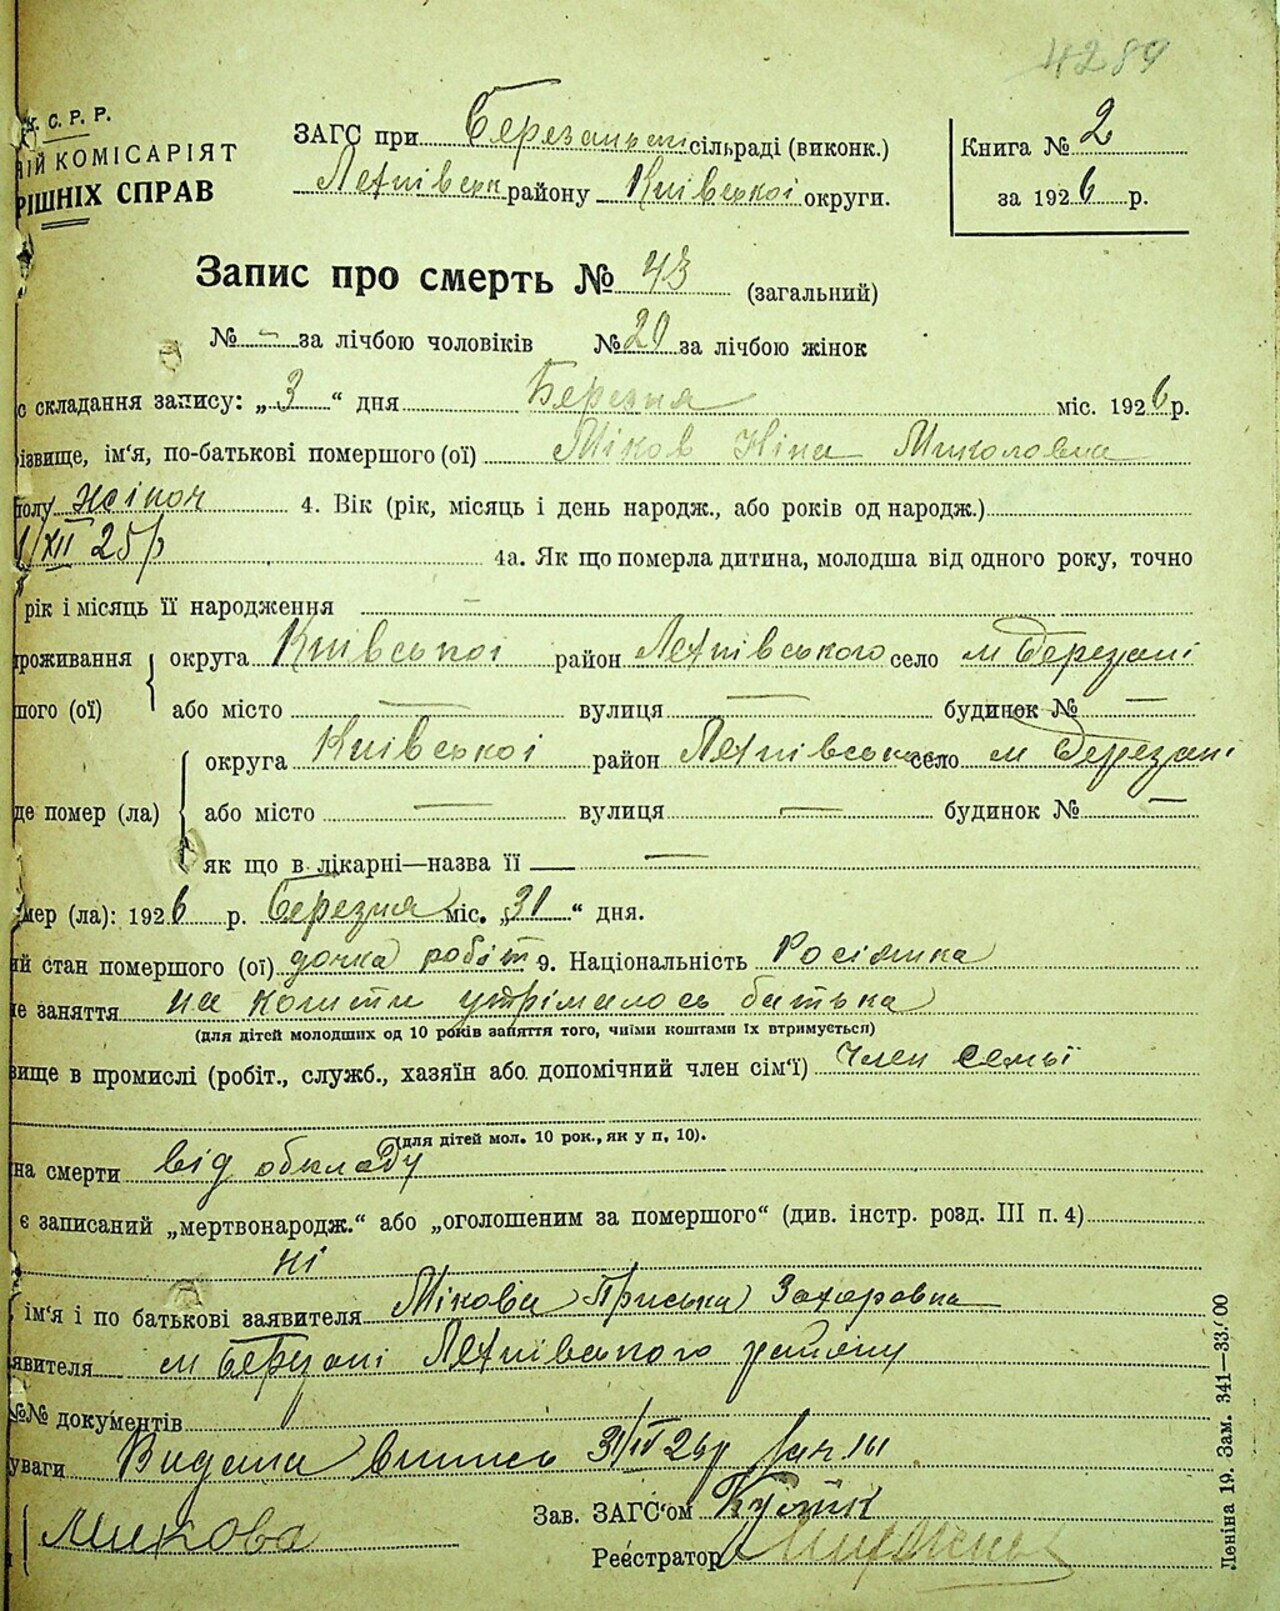 4289
У. С. Р. Р.
НІЙ КОМІСАРІЯТ
РІШНІХ СПРАВ
ЗАГС при Березанській сільраді (виконк.)
Яготинськ району Київської округи.
Книга № 2
за 1926 р.
Запис про смерть № 43 (загальний)
№ – за лічбою чоловіків № 20 за лічбою жінок
с складання запису: „3“ дня Березня міс. 1926 р.
ізвище, ім'я, по-батькові помершого (ої) Міков Ніна Миколовна
полу жіноч 4. Вік (рік, місяць і день народж., або років од народж.)
1/XII 25р 4а. Як що померла дитина, молодша від одного року, точно
рік і місяць її народження –
роживання округа Київської район село м Березані
шого (ої) або місто – вулиця – будинок № –
округа Київської район село м Березані
де помер (ла) або місто – вулиця – будинок № –
як що в лікарні—назва її –
мер (ла): 1926 р. Березня міс. „31“ дня.
ий стан помершого (ої) дочка робіт 9. Національність Росіянка
не заняття на кошти утрімалось батька
(для дітей молодших од 10 років заняття того, чиїми коштами їх втримується)
вище в промислі (робіт., служб., хазяїн або допомічний член сім'ї) Член семьї
(для дітей мол. 10 рок., як у п, 10).
на смерти від обкладу
є записаний „мертвонародж.“ або „оголошеним за помершого“ (див. інстр. розд. III п. 4)
ні
ім'я і по батькові заявителя Мікова Приська Захаровна
явителя м Березані району
№№ документів
уваги Видана випись 31/IV 26р
Микова
Зав. ЗАГС'ом
Реєстратор
Леніна 19. Зам. 341—33.000